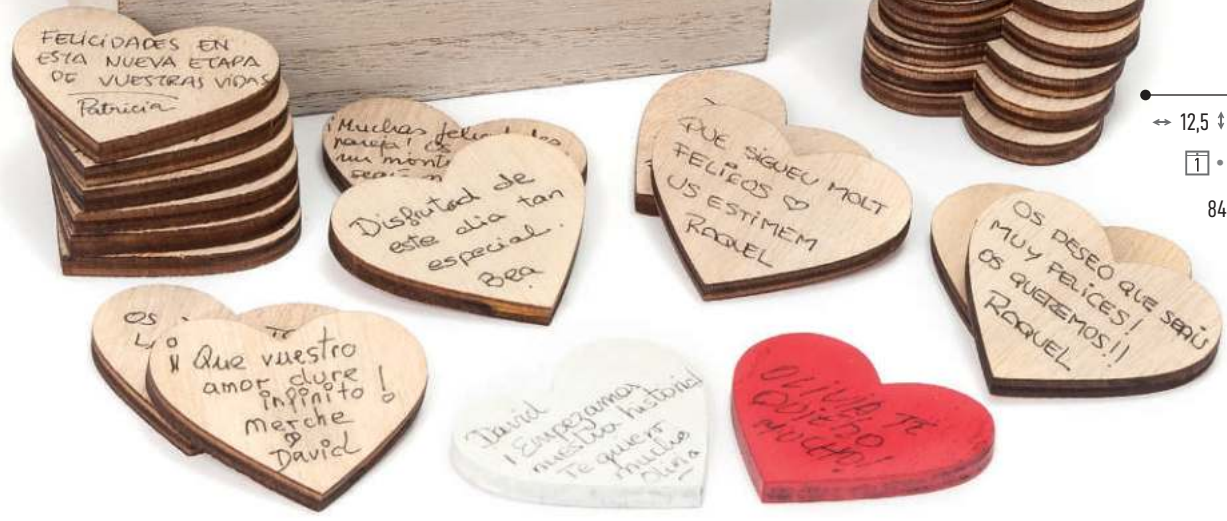 FELICIDADES EN
ESTA NUEVA ETAPA
DE VUESTRAS VIDAS
Patricia
¡Muchas
pareja! Os
un monte
Disfrutad de
este dia tan
especial.
Bea
QUE SIGUEU MOLT
FELIÇOS ♡
US ESTIMEM
RAQUEL
OS DESEO QUE SEAÍS
MUY FELICES!
OS QUEREMOS!!
RAQUEL
OS
¡Que vuestro
amor dure
infinito!
merche
David
David
¡Empezamos
nuestra historia!
Te quiero
mucho
Olivia
OLIVIA TE
QUIERO
MUCHO!
↔ 12,5 ↕
1 •
84